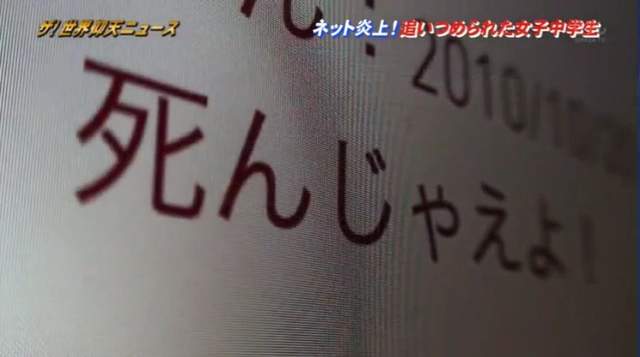 ザ!世界仰天ニュース
ネット炎上!追いつめられた女子中学生
ん!
2010/10/
死んじゃえよ!